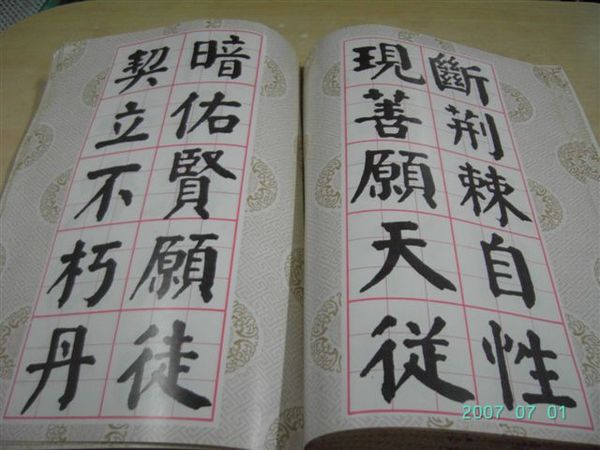 斷荊棘自性
現善願天從
暗佑賢願徒
契立不朽丹
2007 07 01